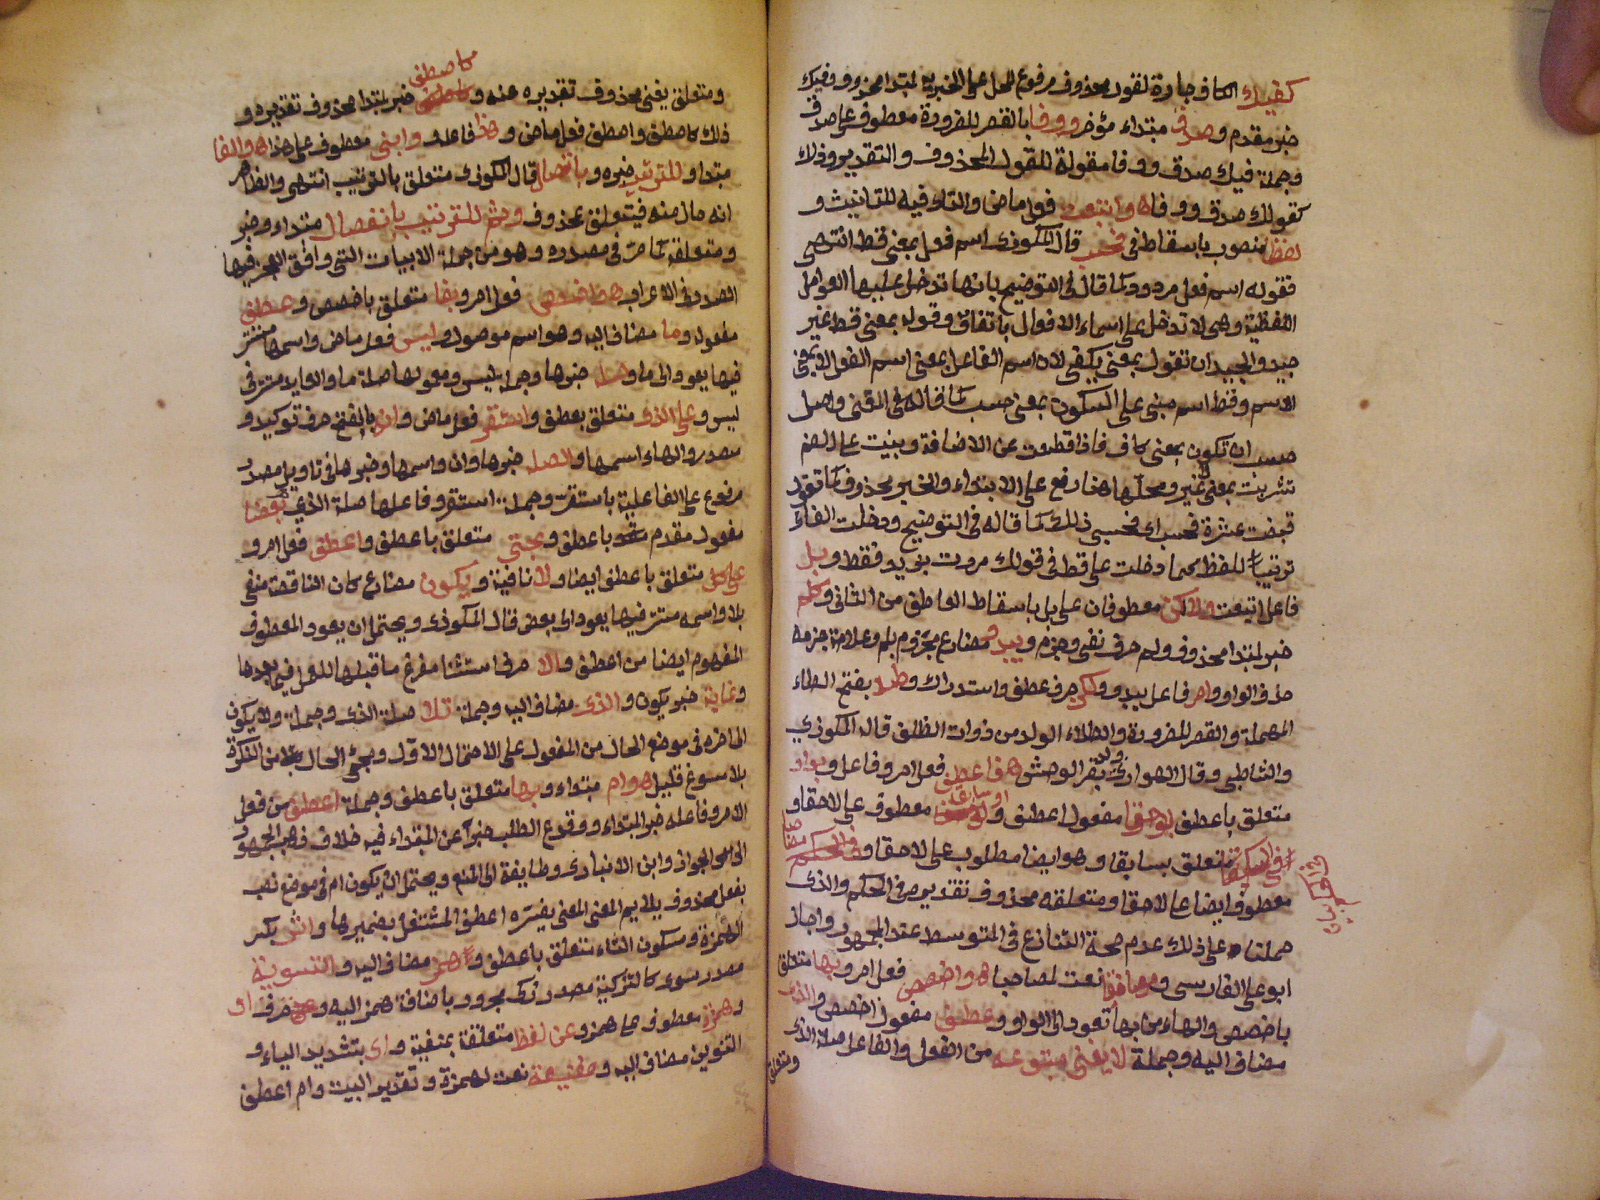 كفيك الكاف جارة لقول محذوف مرفوع المحل على الخبرية لمبتدا محذوف وفيك
خبر مقدم وصدق مبتداء مؤخر ووفا بالقصر للضرورة معطوف على صدق
وجملة فيك صدق ووفا مقولة للقول المحذوف والتقدير وذلك
كقولك صدق ووفا هو واتبعت فعل ماض والتاء فيه للتانيث و
لفظا منصوب باسقاط في فحسب قال المكودي اسم فعل بمعنى قط انتهى
فقوله اسم فعل مردود كما قال في التوضيح بانها تدخل عليها العوامل
اللفظية وهى لا تدخل على اسماء الافعال باتفاق وقوله بمعنى قط غير
جيد والجيد ان تقول بمعنى يكفى لان اسم الفاعل بمعنى اسم الفعل لا بمعنى
الاسم وقط اسم مبنى على السكون بمعنى حسب كما قاله في المغنى واصل
حسب ان تكون بمعنى كاف فاذا قطعت عن الاضافة وبنيت على الضم
تشربت بمعنى لا غير ومحلها هنا رفع على الابتداء والخبر محذوف كما تقول
قبضت عشرة فحسب اى فحسبى ذلك كما قاله في التوضيح ودخلت الفاء
ترتيبا للفظ كما دخلت على قط في قولك مررت بزيد فقط وبل
فاعل اتبعت ولا ولكن معطوفان على بل باسقاط العاطف من الثانى وكلم
خبر لمبتدا محذوف ولم حرف نفى وجزم ويبد مضارع مجزوم بلم وعلامة جزمه
حذف الواو وامر فاعل يبدو ولكن حرف عطف واستدراك وطلا بفتح الطاء
المهملة والقصر للضرورة والطلاء الولد من ذوات الظلف قاله المكودي
والشاطبى وقال الهوارى ولد بقر الوحش هو فاعطف فعل امر وفاعل وبواو
متعلق باعطف ولاحقا مفعول اعطف واو سابقا معطوف على لاحقا و
في الحكم متعلق بسابقا وهو ايضا مطلوب على لاحقا او مصاحبا
معطوف ايضا على لاحقا ومتعلقه محذوف تقديره في الحكم والذى
حملنا على ذلك عدم صحة التنازع في المتوسط عند الجمهور واجاز
ابو على الفارسى وموافقا نعت لصاحبا هو واخصص فعل امر وبها متعلق
باخصص والهاء من بها تعود الى الواو وعطف مفعول اخصص والذى
مضاف اليه وجملة لا يغنى متبوعه من الفعل والفاعل صلة الذى
ومتعلق
ومتعلق يغنى محذوف تقديره عنه وكاصطف خبر لمبتدا محذوف تقديره و
ذلك كاصطف واصطف فعل ماض وهذا فاعله وابنى معطوف على هذا هو والفا
مبتدا وللترتيب خبره وباتصال قال المكودى متعلق بالترتيب انتهى والظاهر
انه حال منه فيتعلق بمحذوف وثم للترتيب بانفصال مبتداء وخبر
ومتعلقه كما مر في مصدره وهو من جملة الابيات التى وافق العجز فيها
الصدر في الاعراب هو واخصص فعل امر وبفا متعلق باخصص وعطف
مفعول وما مضاف اليه وهو اسم موصول وليس فعل ماض واسمها مستتر
فيها يعود الى ما وصله خبرها وجملة ليس ومعمولها صلة ما والعايد مستتر في
ليس وعلى الذى متعلق بعطف واستقر فعل ماض وانه بالفتح حرف توكيد و
مصدر والهاء اسمها والصله خبرها وان واسمها وخبرها في تاويل مصدر
مرفوع على الفاعلية باستقر وجملة استقر وفاعلها صلة الذي بعضا
مفعول مقدم باعطف وبحتى متعلق باعطف واعطف فعل امر و
على كل متعلق باعطف ايضا ولا نافية ويكون مضارع كان الناقصة منفى
بلا واسمه مستتر فيها يعود الى بعض قال المكودى ويحتمل ان يعود المعطوف
المفهوم ايضا من اعطف والا حرف استثنا مفرغ ما قبلها للعمل فيما بعدها
وغاية خبر يكون والذى مضاف اليه وجملة تلا صلة الذى وجملة ولا يكون
الى اخره في موضع الحال من المفعول على الاحتمال الاول ومجئ الحال من النكرة
بلا مسوغ قليل هو وام مبتداء وبها متعلق باعطف وجملة اعطف من فعل
الامر وفاعله خبر المبتداء ووقوع الطلب خبرا عن المبتداء فيه خلاف فذهب الجمهور
الى الجواز وابن الانبارى وطايفة الى المنع ويحتمل ان يكون ام في موضع نصب
بفعل محذوف يلايم المعنى يفسره اعطف المشتغل بضميرها واثر بكسر
الهمزة وسكون الثاء متعلق باعطف وهمز مضاف اليه والتسوية
مصدر سوى كالتزكية مصدر زكى مجرور باضافة همز اليه وحرف او
وهمزة معطوف على همز وعن لفظ متعلقة بمغنية واى بتشديد الياء و
التنوين مضاف اليه ومغنية نعت لهمزة وتقدير البيت وام اعطف